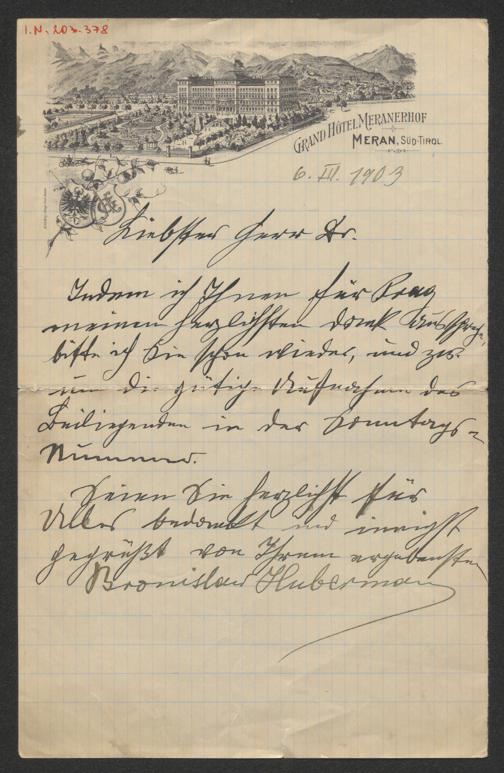 I.N. 203.378
GRAND HÔTEL MERANERHOF
MERAN, SÜD-TIROL.
6. III. 1903
Liebster Herr Dr.
Indem ich Ihnen für Prag
meinen herzlichsten Dank ausspreche,
bitte ich Sie schon wieder, und zw.
um die gütige Aufnahme des
Beiliegenden in der Sonntags-
Nummer.
Seien Sie herzlichst für
Alles bedankt und innigst
gegrüßt von Ihrem ergebensten
Bronislaw Huberman